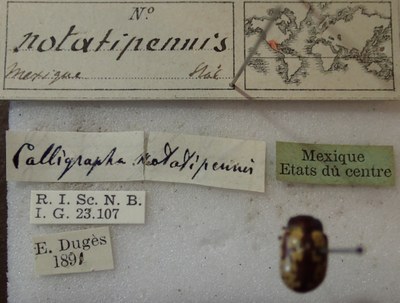 Nº
notatipennis
Mexique Stål
Calligrapha notatipennis
Mexique
Etats du centre
R. I. Sc. N. B.
I. G. 23.107
E. Dugès
1891